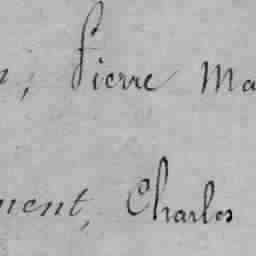 , Pierre Ma
ment, Charles